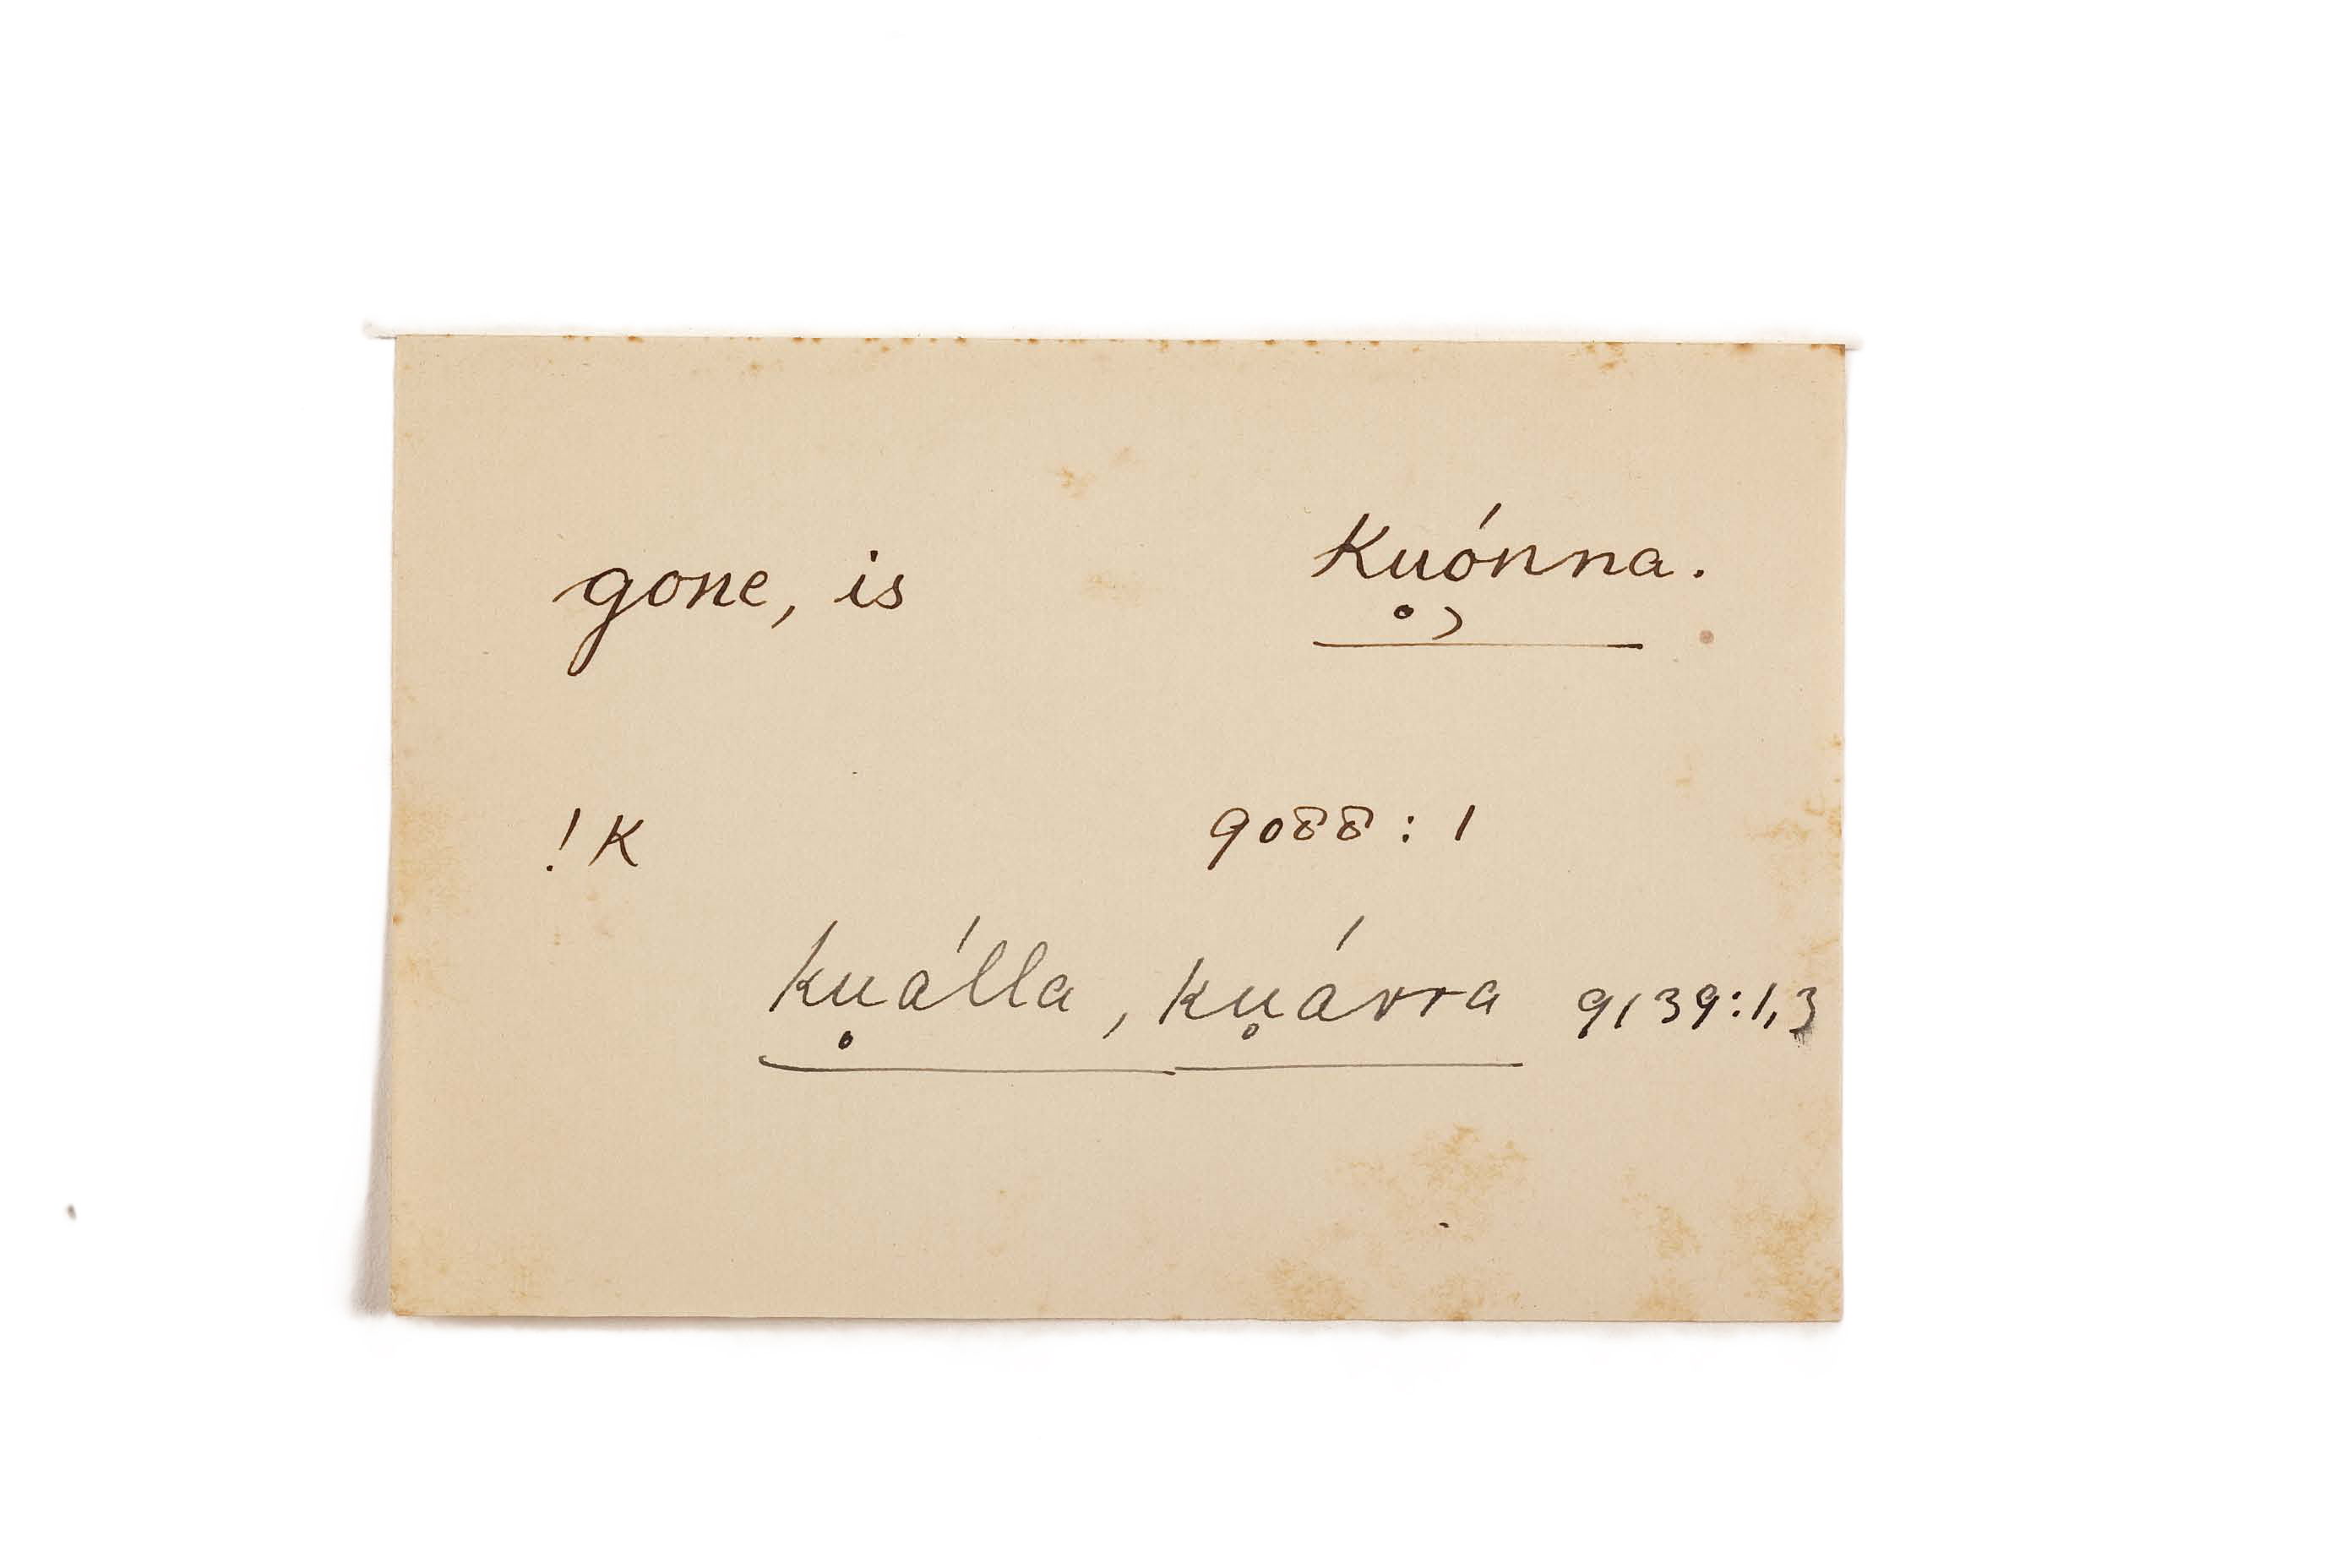 gone, is Ku̥ó̦nna.
!K 9088 : 1
ku̥álla, ku̥árra 9139:1,3